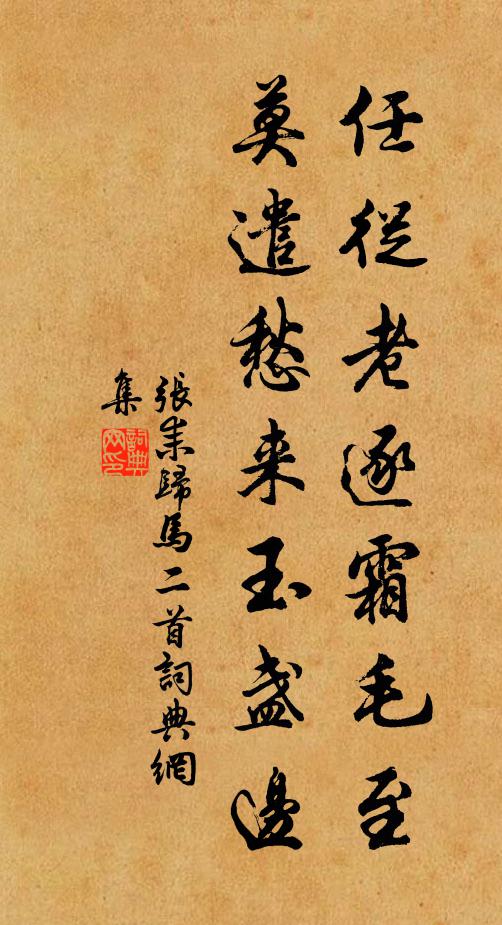 任從老逐霜毛至
莫遣愁来玉盏邊
張耒歸馬二首詞典網
集
詞典
网印